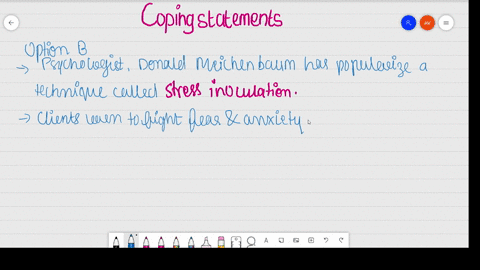 Coping statements
Option B
→ Psychologist, Donald Meichenbaum has popularize a
technique called stress inoculation.
→ Clients learn to fright fear & anxiety